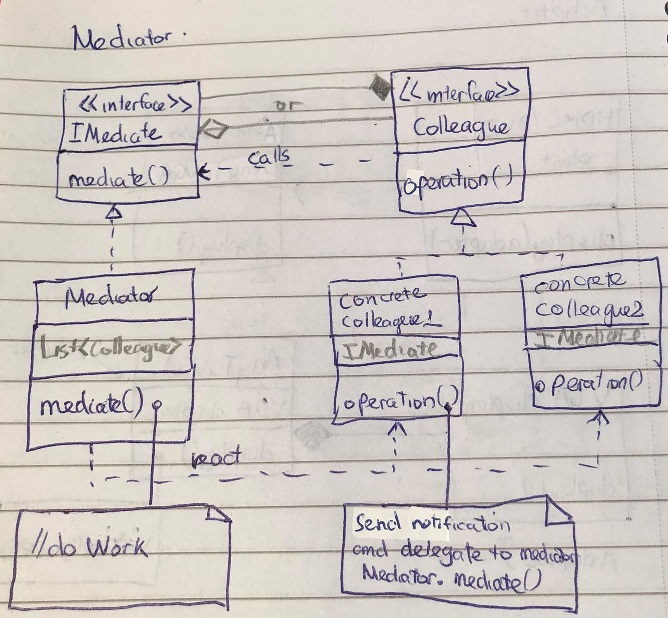 Mediator.
<<interface>>
IMediate
mediate()
or
calls
<<interface>>
Colleague
operation()
Mediator
List<Colleague>
mediate()
Concrete
Colleague1
IMediate
operation()
concrete
colleague2
IMediate
operation()
react
//do Work
Send notification
and delegate to mediator
Mediator. mediate()